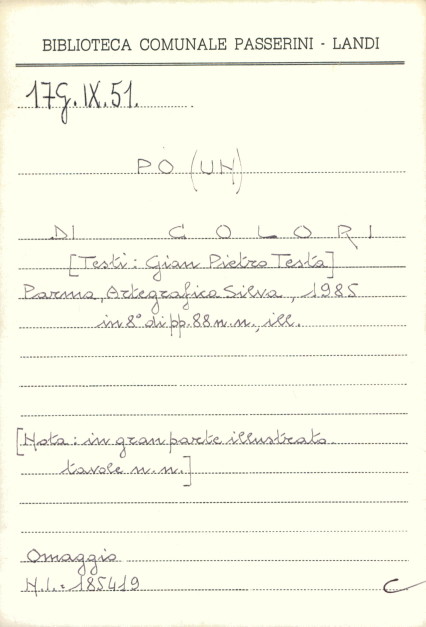 BIBLIOTECA COMUNALE PASSERINI - LANDI
17G.IX.51.
PO (UN)
DI COLORI
[Testi: Gian Pietro Testa]
Parma, Artegrafica Silva, 1985
in 8° di pp. 88 n.n., ill.
[Nota: in gran parte illustrato
tavole n.n.]
Omaggio
N.I.: 185419
C